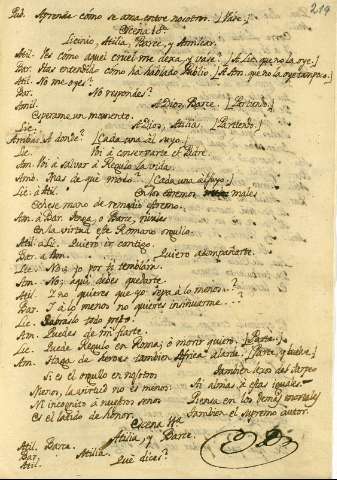 219
Pub. Aprenda cómo se ama entre nosotros. [Vase.]
Escena 10ª
Licinio, Atilia, Barce, y Amilcar.
Atil. Ves como aquel cruel me dexa, y vase? [A Lic. que no la oye.]
Bar. Has entendido como ha hablado Publio [A Am. que no la oye tampoco.]
Atil. No me oyes?
Bar. No respondes?
Amil. A Dios, Barce [Partiendo.]
Esperame un momento.
Lic. A Dios, Atilia [Partiendo.]
Ambas. A donde? [Cada una al suyo.]
Lic. Voi à conservarte el Padre.
Am. Voi à salvar à Regulo la vida.
Amb. Mas de què modo? [Cada una al suyo.]
Lic. à Atil. En los extremos males
echese mano de remedio extremo.
Am. à Bar. Tenga, o Barce, rivales
En la virtud este Romano orgullo.
Atil. à Lic. Quiero ir contigo.
Bar. à Am. Quiero acompañarte.
Lic. No, yo por ti temblàra.
Am. No; aqui debes quedarte.
Atil. Y no quieres que yo sepa à lo menos..?
Bar. Y à lo menos no quieres insinuarme...?
Lic. Sabraslo todo presto.
Am. Puedes de mi fiarte.
Lic. Quede Regulo en Roma; ò morir quiero. [Parte.]
Am. Haga de heroes tambien Africa alarde. [Parte, y vuelve.]
Si es el orgullo en nosotros
Menor, la virtud no es menos:
Ni incognito à nuestro seno
Es el latido de honor.
Tambien
En almas à estas iguales
Piensa en los demas mortales
Tambien el supremo autor.
Escena 11ª
Atilia, y Barce.
Atil. Barce.
Bar. Atilia.
Atil. Què dices?